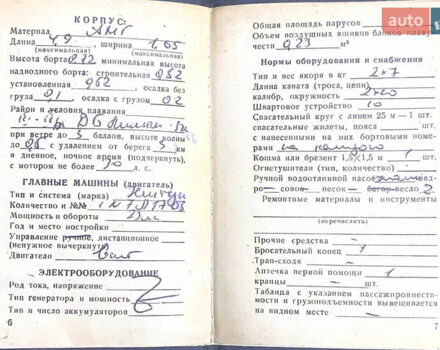 КОРПУС:
Материал АМГ
Длина 4,9, ширина 1,65
(максимальная) (максимальная)
Высота борта 0,72 минимальная высота
надводного борта: строительная 052
установленная 052, осадка без
груза 0,1, осадка с грузом 02
Район и условия плавания
при ветре до 3 баллов, высоте волны
до 0,6 с удалением от берега 3 км
в дневное, ночное время (подчеркнуть),
с мотором не более 10 л. с.
ГЛАВНЫЕ МАШИНЫ (двигатель)
Тип и система (марка)
Количество и №№ 1 N
Мощность и обороты
Год и место постройки
Управление ручное, дистанционное
(ненужное вычеркнуть)
Двигатели
ЭЛЕКТРООБОРУДОВАНИЕ
Род тока, напряжение
Тип генератора и мощность
Тип и число аккумуляторов
6
Общая площадь парусов
Объем воздушных ящиков блоков плаву
чести 0,23 м³
Нормы оборудования и снабжения
Тип и вес якоря в кг 2×7
Длина каната (троса, цепи)
калибр, окружность 2×20
Швартовое устройство 10
Спасательный круг с линем 25 м — 1 шт.
спасательные жилеты, пояса шт.
с нанесенными на них бортовыми номе-
рами на каждого
Кошма или брезент 1,5×1,5 м 1 шт.
Огнетушители (тип, количество)
Ручной водоотливной насос вед-
ро совок песок багор весло 2
Ремонтные материалы и инструменты
(перечислить)
Прочие средства
Бросательный конец 1
Трап-сходня
Аптечка первой помощи 1 шт.
кранцы шт.
Таблица с указанием пассажировмести-
мости и грузоподъемности вывешивается
на видном месте
7
auto